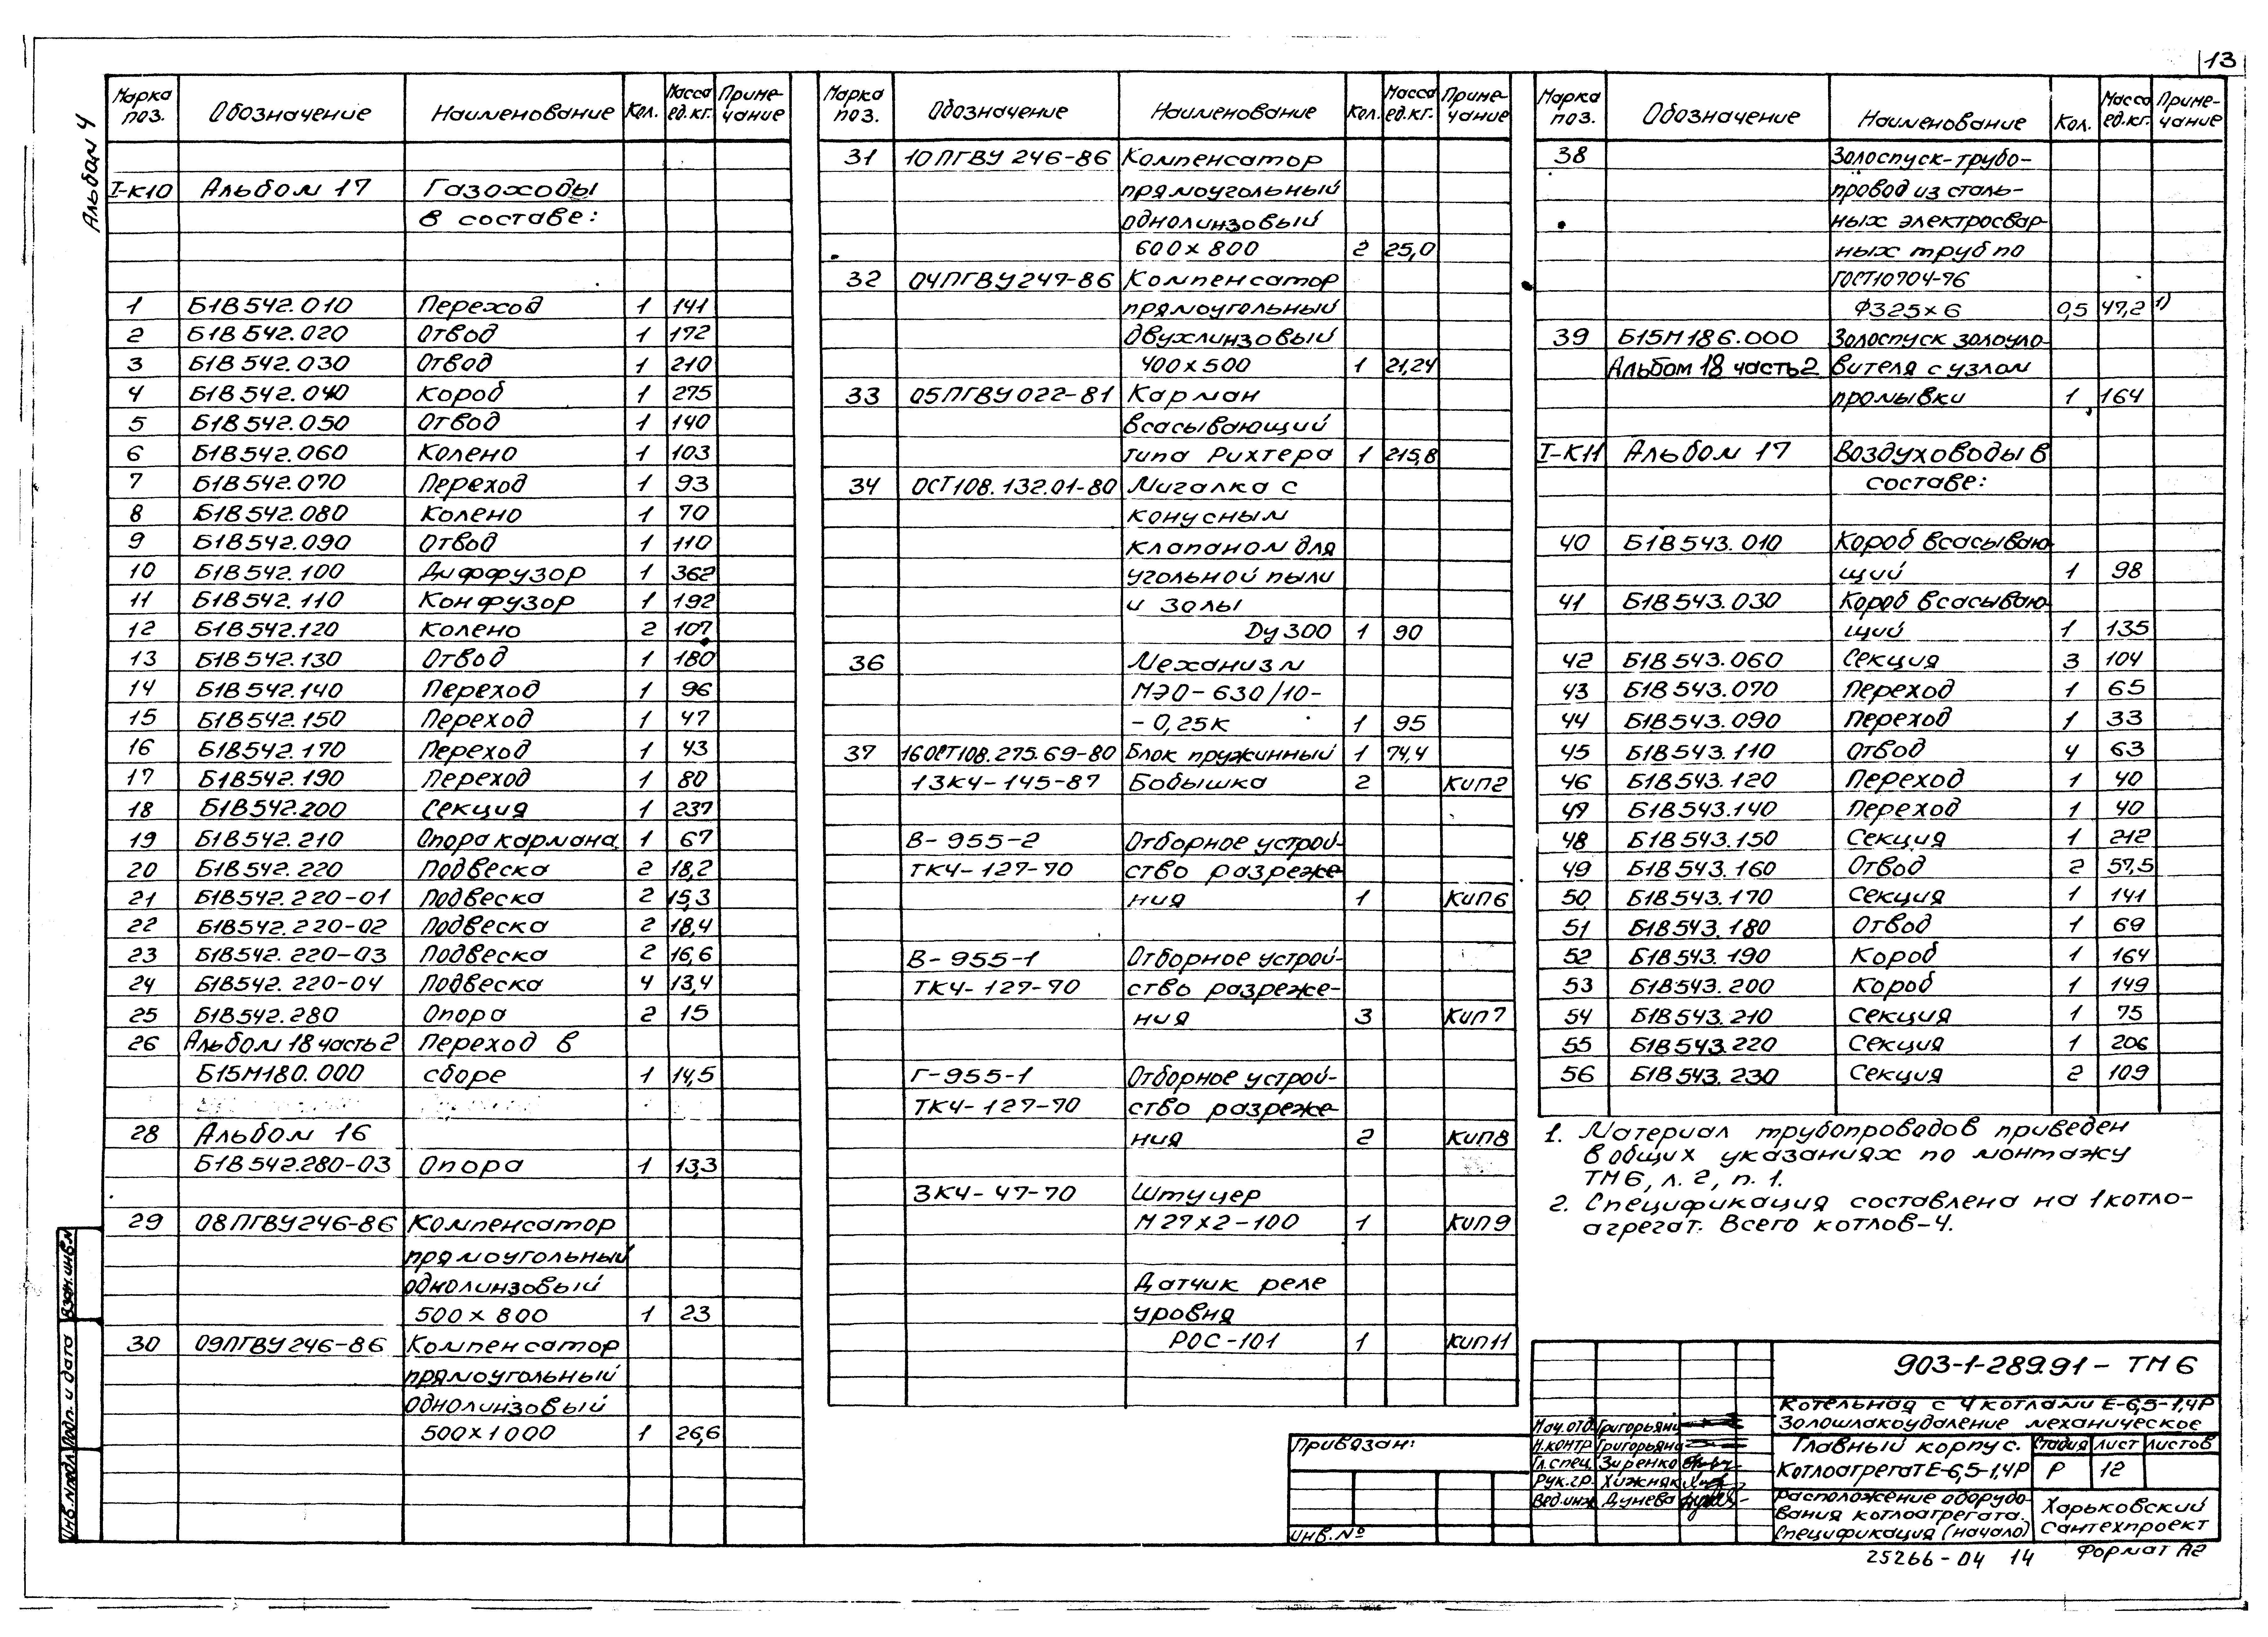 13
Альбом 4
Марка поз. Обозначение Наименование Кол. Масса ед.кг. Приме-чание
I-К10 Альбом 17 Газоходы
в составе:
1 Б1В542.010 Переход 1 141
2 Б1В542.020 Отвод 1 172
3 Б1В542.030 Отвод 1 210
4 Б1В542.040 Короб 1 275
5 Б1В542.050 Отвод 1 140
6 Б1В542.060 Колено 1 103
7 Б1В542.070 Переход 1 93
8 Б1В542.080 Колено 1 70
9 Б1В542.090 Отвод 1 110
10 Б1В542.100 Диффузор 1 362
11 Б1В542.110 Конфузор 1 192
12 Б1В542.120 Колено 2 107
13 Б1В542.130 Отвод 1 180
14 Б1В542.140 Переход 1 96
15 Б1В542.150 Переход 1 47
16 Б1В542.170 Переход 1 43
17 Б1В542.190 Переход 1 80
18 Б1В542.200 Секция 1 237
19 Б1В542.210 Опора кармана 1 67
20 Б1В542.220 Подвеска 2 18,2
21 Б1В542.220-01 Подвеска 2 15,3
22 Б1В542.220-02 Подвеска 2 18,4
23 Б1В542.220-03 Подвеска 2 16,6
24 Б1В542.220-04 Подвеска 4 13,4
25 Б1В542.280 Опора 2 15
26 Альбом 18 часть 2 Переход в
Б15М180.000 сборе 1 14,5
28 Альбом 16
Б1В542.280-03 Опора 1 13,3
29 08ПГВУ246-86 Компенсатор
прямоугольный
однолинзовый
500×800 1 23
30 09ПГВУ246-86 Компенсатор
прямоугольный
однолинзовый
500×1000 1 26,6
Марка поз. Обозначение Наименование Кол. Масса ед.кг. Приме-чание
31 10ПГВУ246-86 Компенсатор
прямоугольный
однолинзовый
600×800 2 25,0
32 04ПГВУ247-86 Компенсатор
прямоугольный
двухлинзовый
400×500 1 21,24
33 05ПГВУ022-81 Карман
всасывающий
типа Рихтера 1 215,8
34 ОСТ108.132.01-80 Мигалка с
конусным
клапаном для
угольной пыли
и золы
Ду300 1 90
36 Механизм
МЭО-630/10-
-0,25К 1 95
37 16ОСТ108.275.69-80 Блок пружинный 1 74,4
13К4-145-87 Бобышка 2 КИП2
В-955-2 Отборное устрой-
ТК4-127-70 ство разреже
ния 1 КИП6
В-955-1 Отборное устрой-
ТК4-127-70 ство разреже-
ния 3 КИП7
Г-955-1 Отборное устрой-
ТК4-127-70 ство разреже-
ния 2 КИП8
ЗК4-47-70 Штуцер
М27×2-100 1 КИП9
Датчик реле
уровня
РОС-101 1 КИП11
Марка поз. Обозначение Наименование Кол. Масса ед.кг. Приме-чание
38 Золоспуск-трубо-
провод из сталь-
ных электросвар-
ных труб по
ГОСТ10704-76
Ф325×6 0,5 47,2 1)
39 Б15М186.000 Золоспуск золоуло-
Альбом 18 часть 2 вителя с узлом
промывки 1 164
I-К11 Альбом 17 Воздуховоды в
составе:
40 Б1В543.010 Короб всасываю-
щий 1 98
41 Б1В543.030 Короб всасываю-
щий 1 135
42 Б1В543.060 Секция 3 104
43 Б1В543.070 Переход 1 65
44 Б1В543.090 Переход 1 33
45 Б1В543.110 Отвод 4 63
46 Б1В543.120 Переход 1 40
47 Б1В543.140 Переход 1 40
48 Б1В543.150 Секция 1 212
49 Б1В543.160 Отвод 2 57,5
50 Б1В543.170 Секция 1 141
51 Б1В543.180 Отвод 1 69
52 Б1В543.190 Короб 1 164
53 Б1В543.200 Короб 1 149
54 Б1В543.210 Секция 1 75
55 Б1В543.220 Секция 1 206
56 Б1В543.230 Секция 2 109
1. Материал трубопроводов приведен
в общих указаниях по монтажу
ТМ6, л. 2, п. 1.
2. Спецификация составлена на 1 котло-
агрегат. Всего котлов-4.
903-1-289.91 - ТМ6
Котельная с 4 котлами Е-6,5-1,4Р
Золошлакоудаление механическое
Нач.отд. Григорьянц
Н.контр. Григорьянц
Гл.спец. Зиренко
Рук.гр. Хижняк
Вед.инж. Дунева
Главный корпус.
Котлоагрегат Е-6,5-1,4Р
Стадия Лист Листов
Р 12
Расположение оборудо-
вания котлоагрегата.
Спецификация (начало)
Харьковский
Сантехпроект
Привязан:
Инв.№
Взам.инв.№
Подп. и дата
Инв.№подл.
25266-04 14 Формат А2